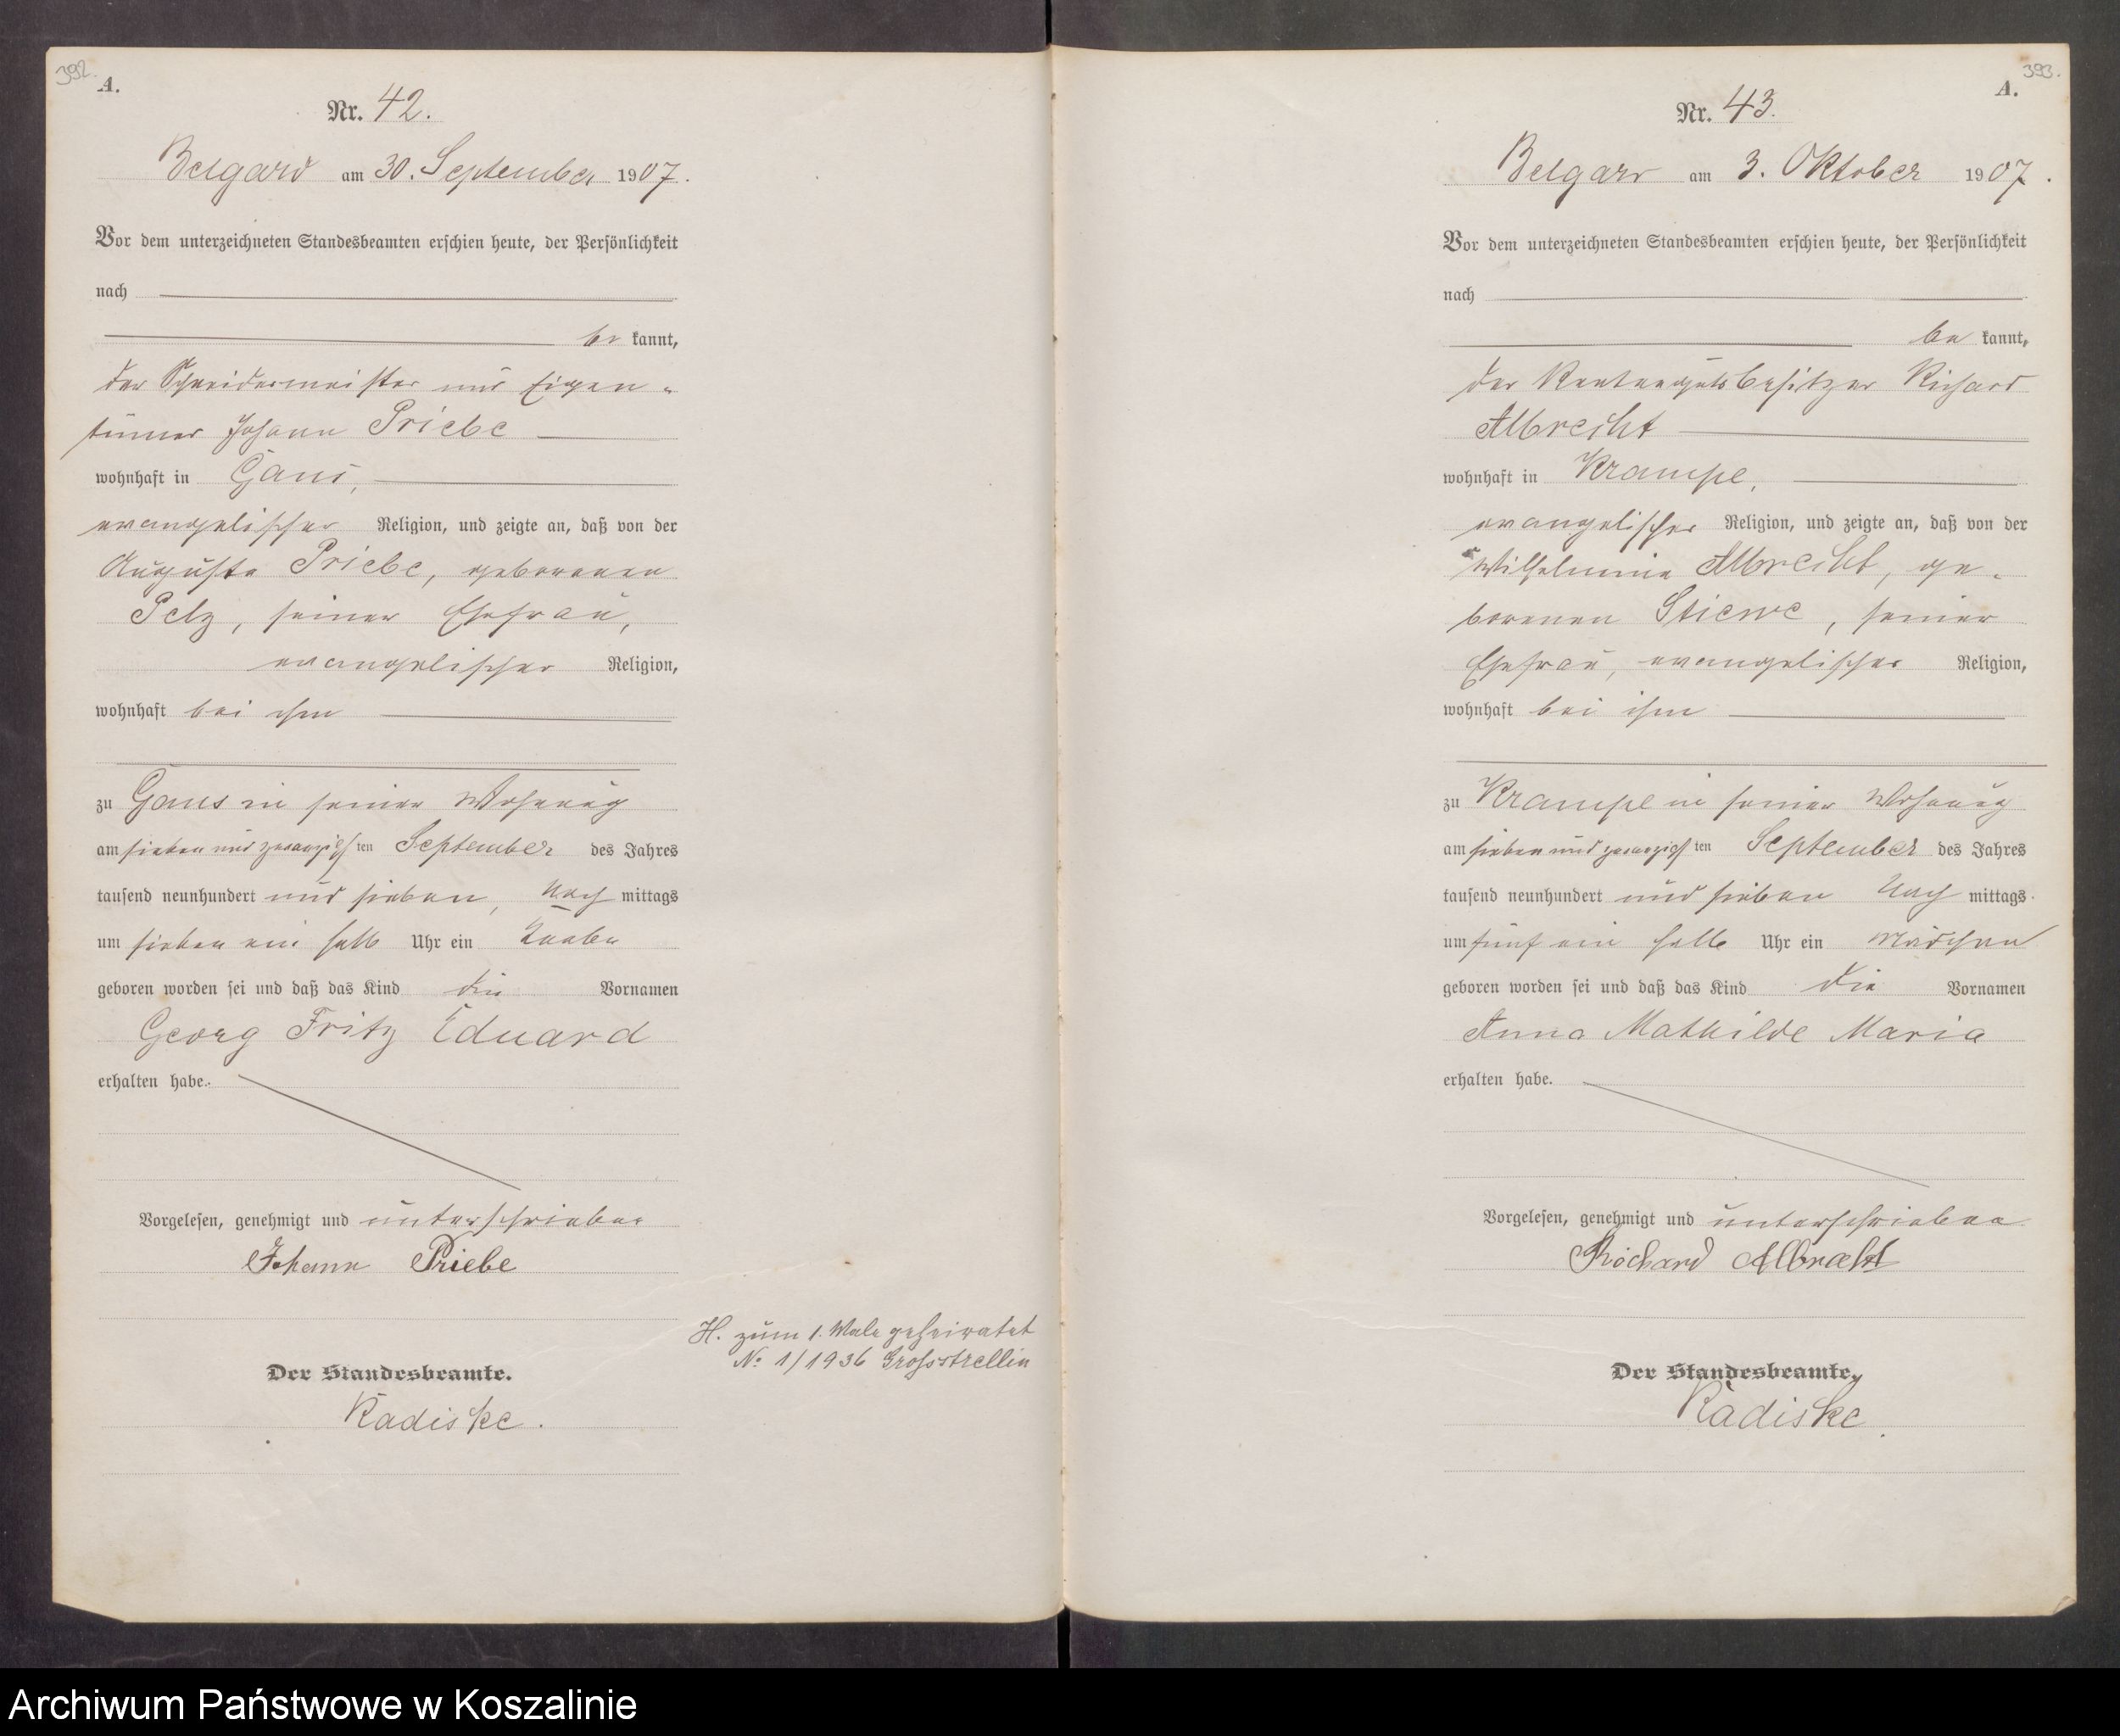 392.
A.
Nr. 42.
Belgard am 30. September 1907.
Vor dem unterzeichneten Standesbeamten erschien heute, der Persönlichkeit
nach
be kannt,
der Schneidermeister und Eigen-
tümer Johann Priebe
wohnhaft in Gans,
evangelischer Religion, und zeigte an, daß von der
Auguste Priebe, geborenen
Pelz, seiner Ehefrau,
evangelischer Religion,
wohnhaft bei ihm
zu Gans in seiner Wohnung
am sieben und zwanzigsten September des Jahres
tausend neunhundert und sieben, Nach mittags
um sieben ein halb Uhr ein Knabe
geboren worden sei und daß das Kind die Vornamen
Georg Fritz Eduard
erhalten habe.
Vorgelesen, genehmigt und unterschrieben
Johann Priebe
Der Standesbeamte.
Radiske.
H. zum 1. Male geheiratet
No 1/1936 Grossstrellin
393.
A.
Nr. 43.
Belgard am 3. Oktober 1907.
Vor dem unterzeichneten Standesbeamten erschien heute, der Persönlichkeit
nach
be kannt,
der Rentengutsbesitzer Richard
Albrecht
wohnhaft in Krampe,
evangelischer Religion, und zeigte an, daß von der
Wilhelmine Albrecht, ge-
borenen Stiewe, seiner
Ehefrau, evangelischer Religion,
wohnhaft bei ihm
zu Krampe in seiner Wohnung
am sieben und zwanzigsten September des Jahres
tausend neunhundert und sieben Nach mittags
um fünf ein halb Uhr ein Mädchen
geboren worden sei und daß das Kind die Vornamen
Anna Mathilde Maria
erhalten habe.
Vorgelesen, genehmigt und unterschrieben
Richard Albrecht
Der Standesbeamte.
Radiske.
Archiwum Państwowe w Koszalinie